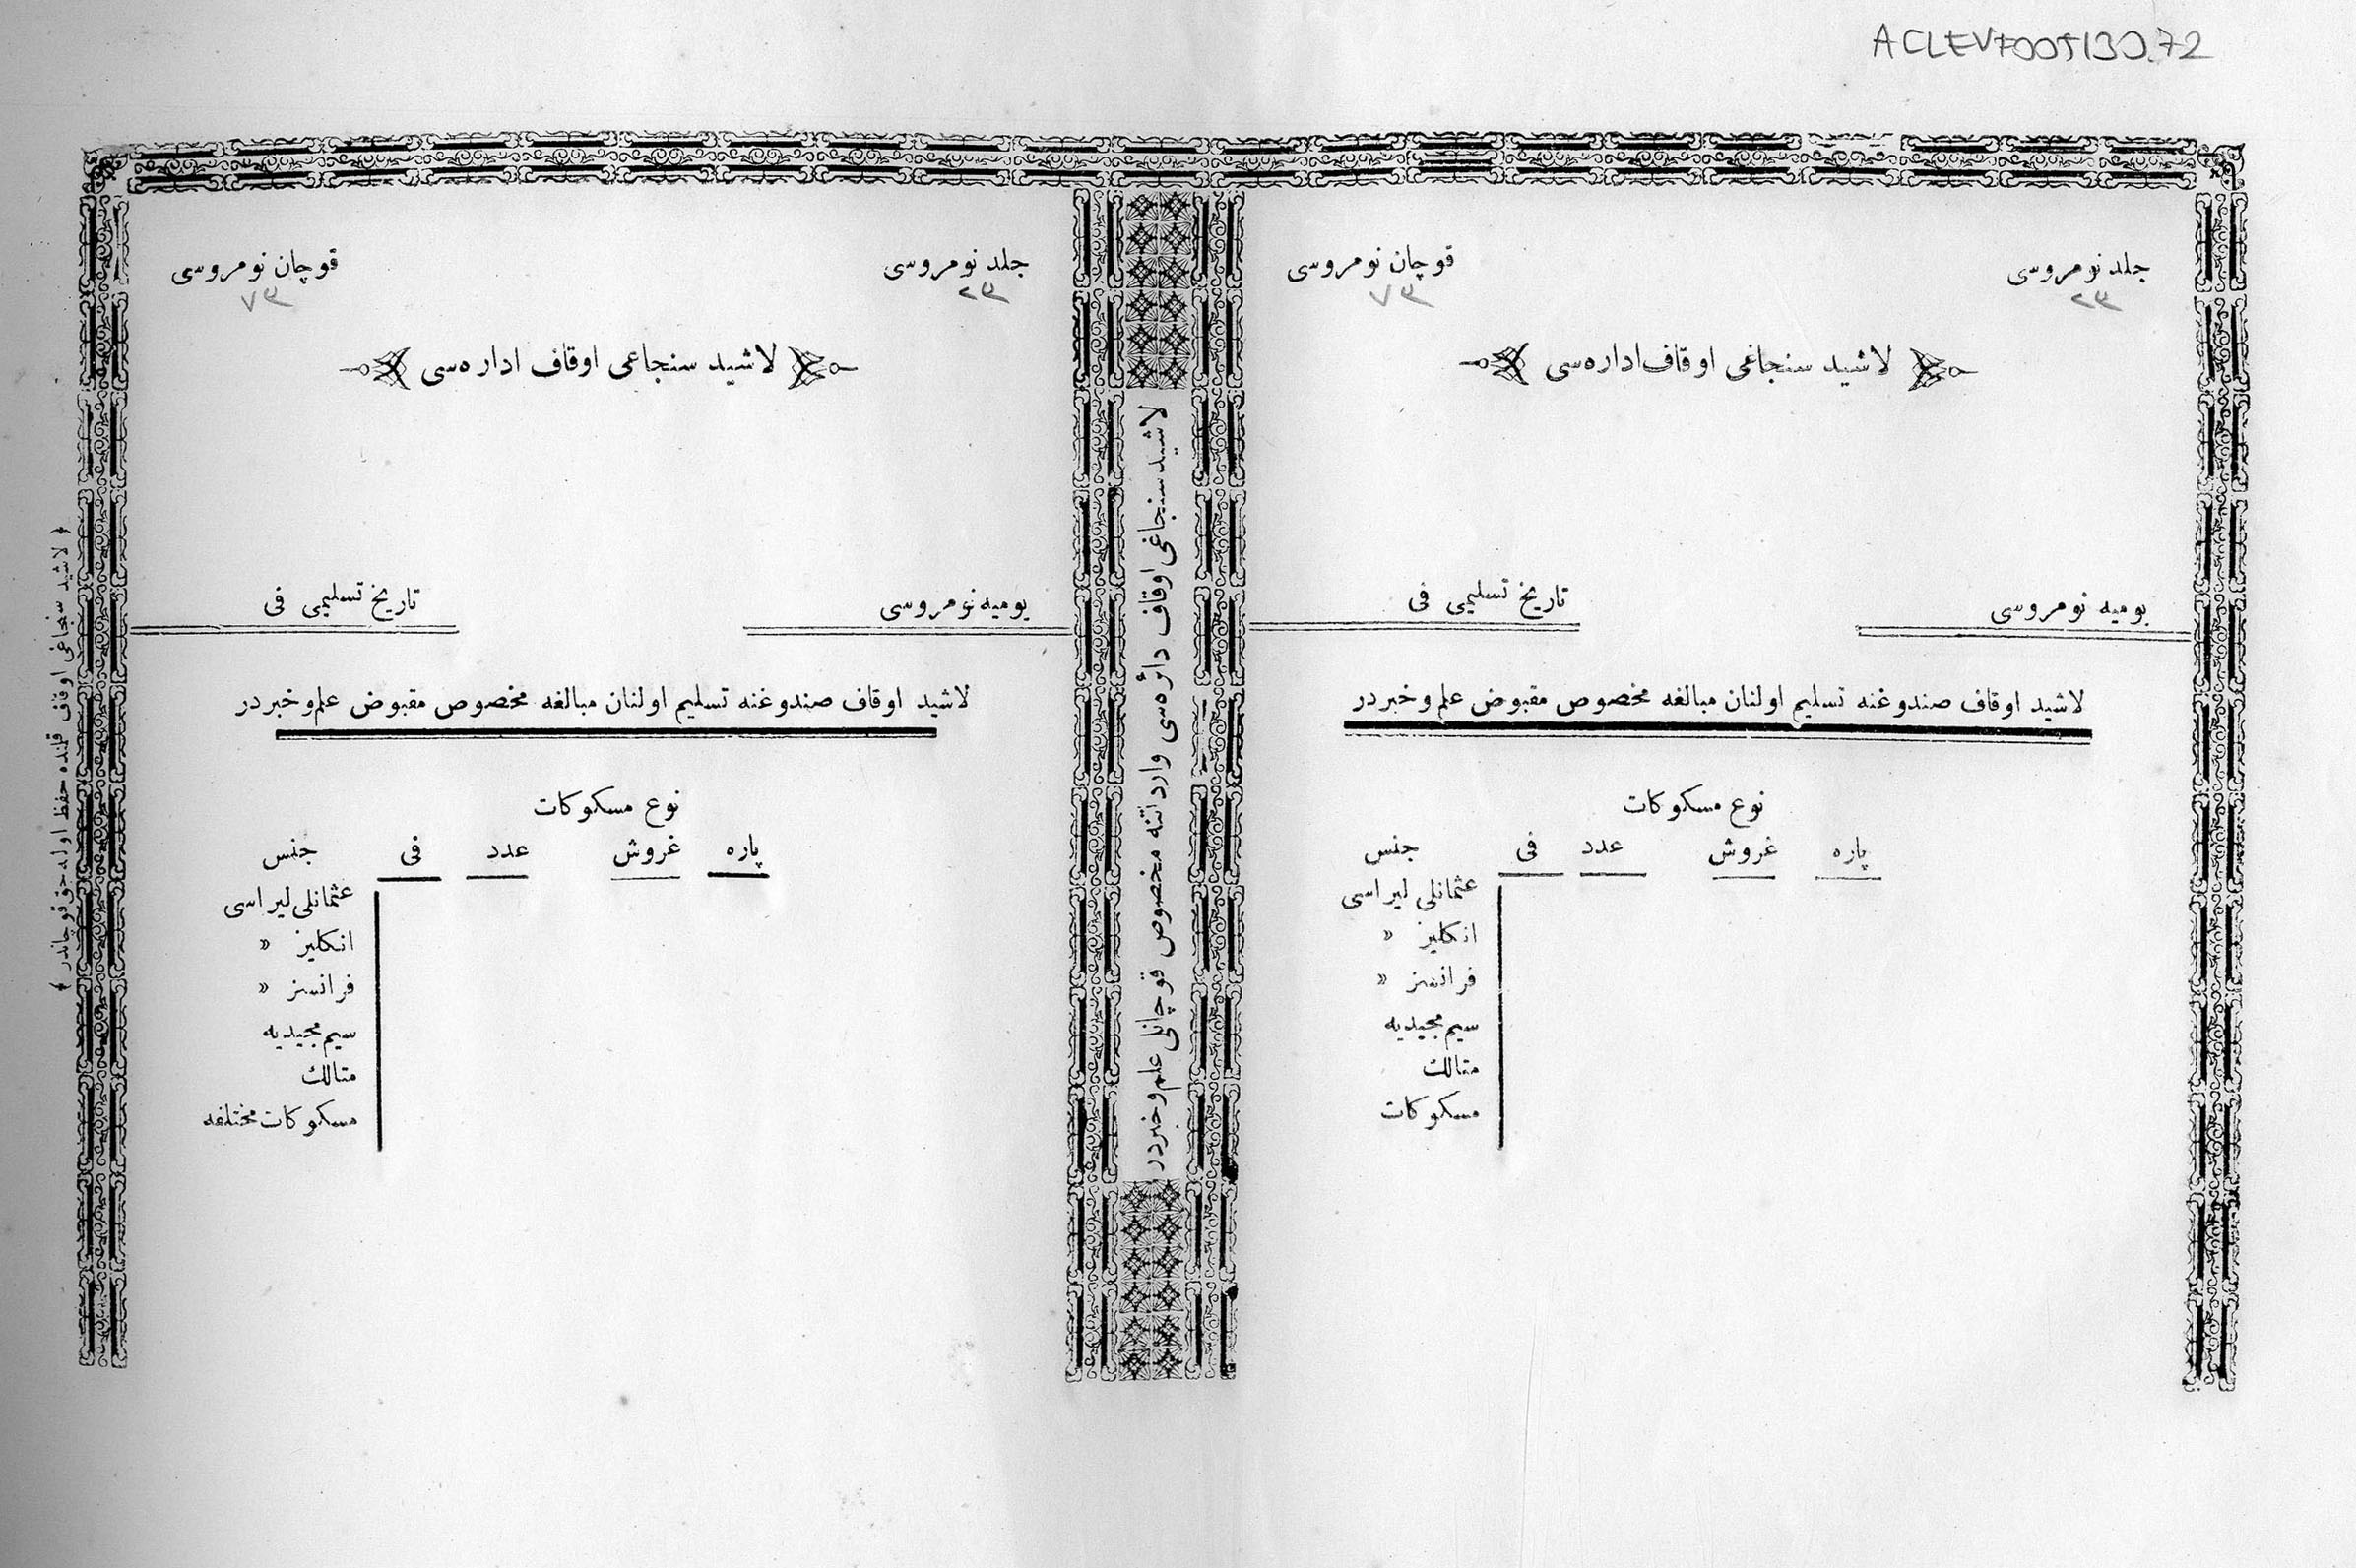 ACLEV7005130.72
جلد نومروسی
٢٣
قوچان نومروسی
٧٣
لاشید سنجاغی اوقاف اداره‌سی
یومیه نومروسی
تاریخ تسلیمی فی
لاشید اوقاف صندوغنه تسلیم اولنان مبالغه مخصوص مقبوض علم و خبردر
نوع مسکوکات
پاره غروش عدد فی جنس
عثمانلی لیراسی
انکلیز »
فرانسز »
سیم مجیدیه
متالك
مسکوکات
لاشید سنجاغی اوقاف دائره‌سی وارداتنه مخصوص قوچانلی علم و خبردر
جلد نومروسی
٢٣
قوچان نومروسی
٧٣
لاشید سنجاغی اوقاف اداره‌سی
یومیه نومروسی
تاریخ تسلیمی فی
لاشید اوقاف صندوغنه تسلیم اولنان مبالغه مخصوص مقبوض علم و خبردر
نوع مسکوکات
پاره غروش عدد فی جنس
عثمانلی لیراسی
انکلیز »
فرانسز »
سیم مجیدیه
متالك
مسکوکات مختلفه
﴿ لاشید سنجاغی اوقاف قلنده حفظ اوله‌جق قوچاندر ﴾